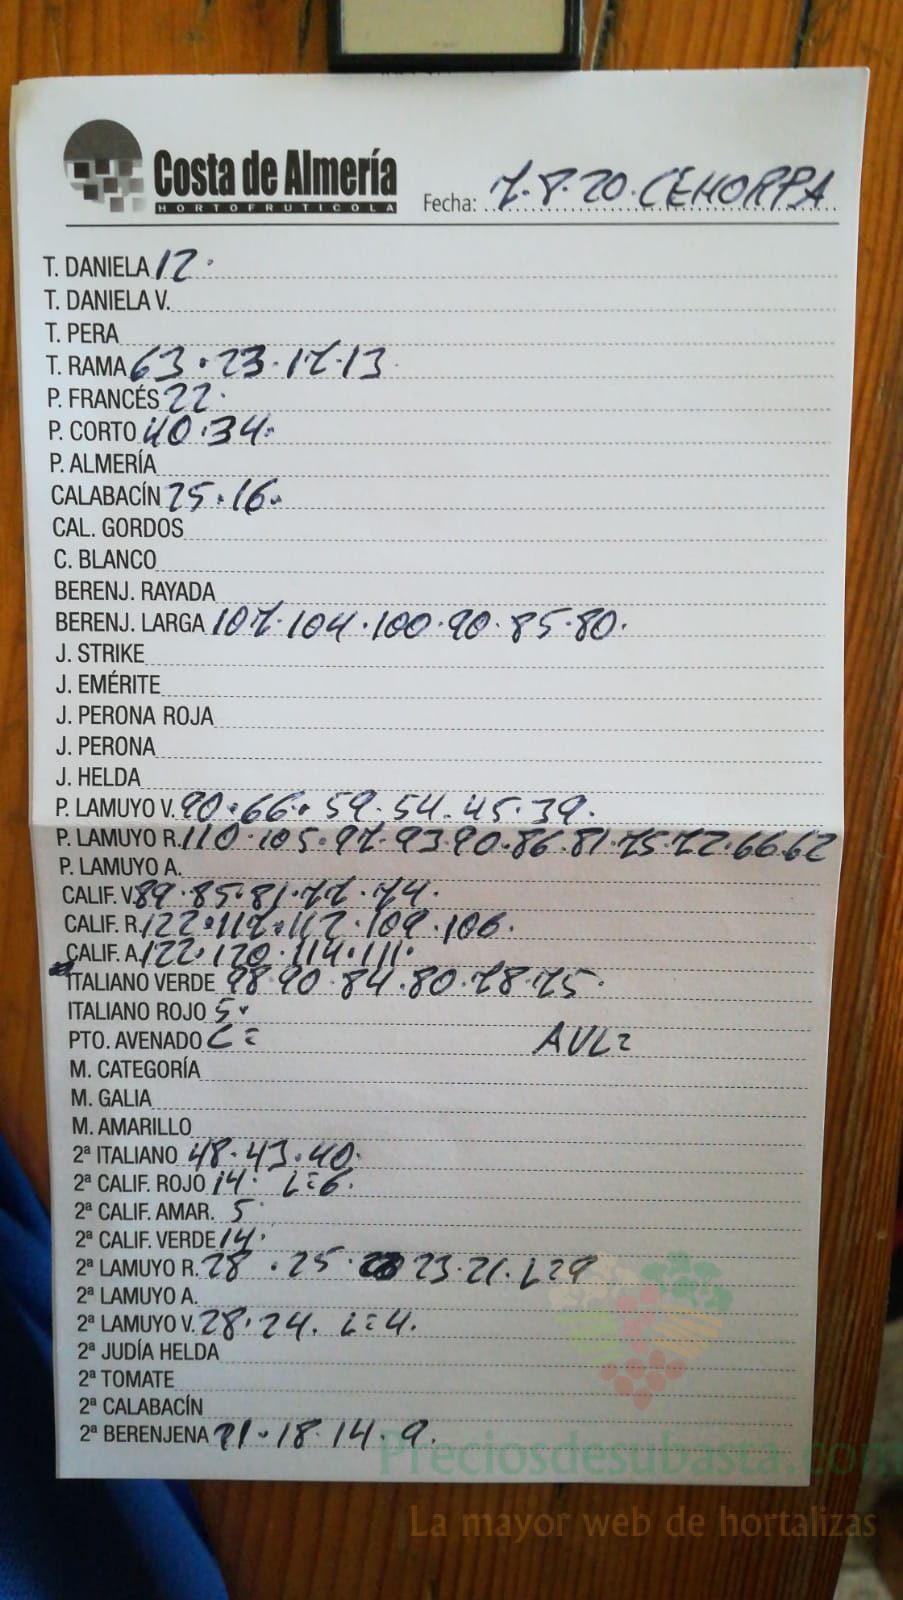 Costa de Almería
HORTOFRUTICOLA
Fecha: 7.8.20. CEHORPA
T. DANIELA 12.
T. DANIELA V.
T. PERA
T. RAMA 63.23.17.13
P. FRANCÉS 22.
P. CORTO 40.34.
P. ALMERÍA
CALABACÍN 25.16.
CAL. GORDOS
C. BLANCO
BERENJ. RAYADA
BERENJ. LARGA 107.104.100.90.85.80.
J. STRIKE
J. EMÉRITE
J. PERONA ROJA
J. PERONA
J. HELDA
P. LAMUYO V. 90.66.59.54.45.39.
P. LAMUYO R. 110.105.97.93.90.86.81.75.72.66.62
P. LAMUYO A.
CALIF. V. 89.85.81.77.74.
CALIF. R. 122.117.112.109.106.
CALIF. A. 122.120.114.111.
ITALIANO VERDE 98.90.84.80.78.75.
ITALIANO ROJO 5.
PTO. AVENADO C= AVL=
M. CATEGORÍA
M. GALIA
M. AMARILLO
2ª ITALIANO 48.43.40.
2ª CALIF. ROJO 14. L=6.
2ª CALIF. AMAR. 5.
2ª CALIF. VERDE 14.
2ª LAMUYO R. 28.25. 23.21. L=9
2ª LAMUYO A.
2ª LAMUYO V. 28.24. L=4.
2ª JUDÍA HELDA
2ª TOMATE
2ª CALABACÍN
2ª BERENJENA 21.18.14.9.
Preciosdesubasta.com
La mayor web de hortalizas